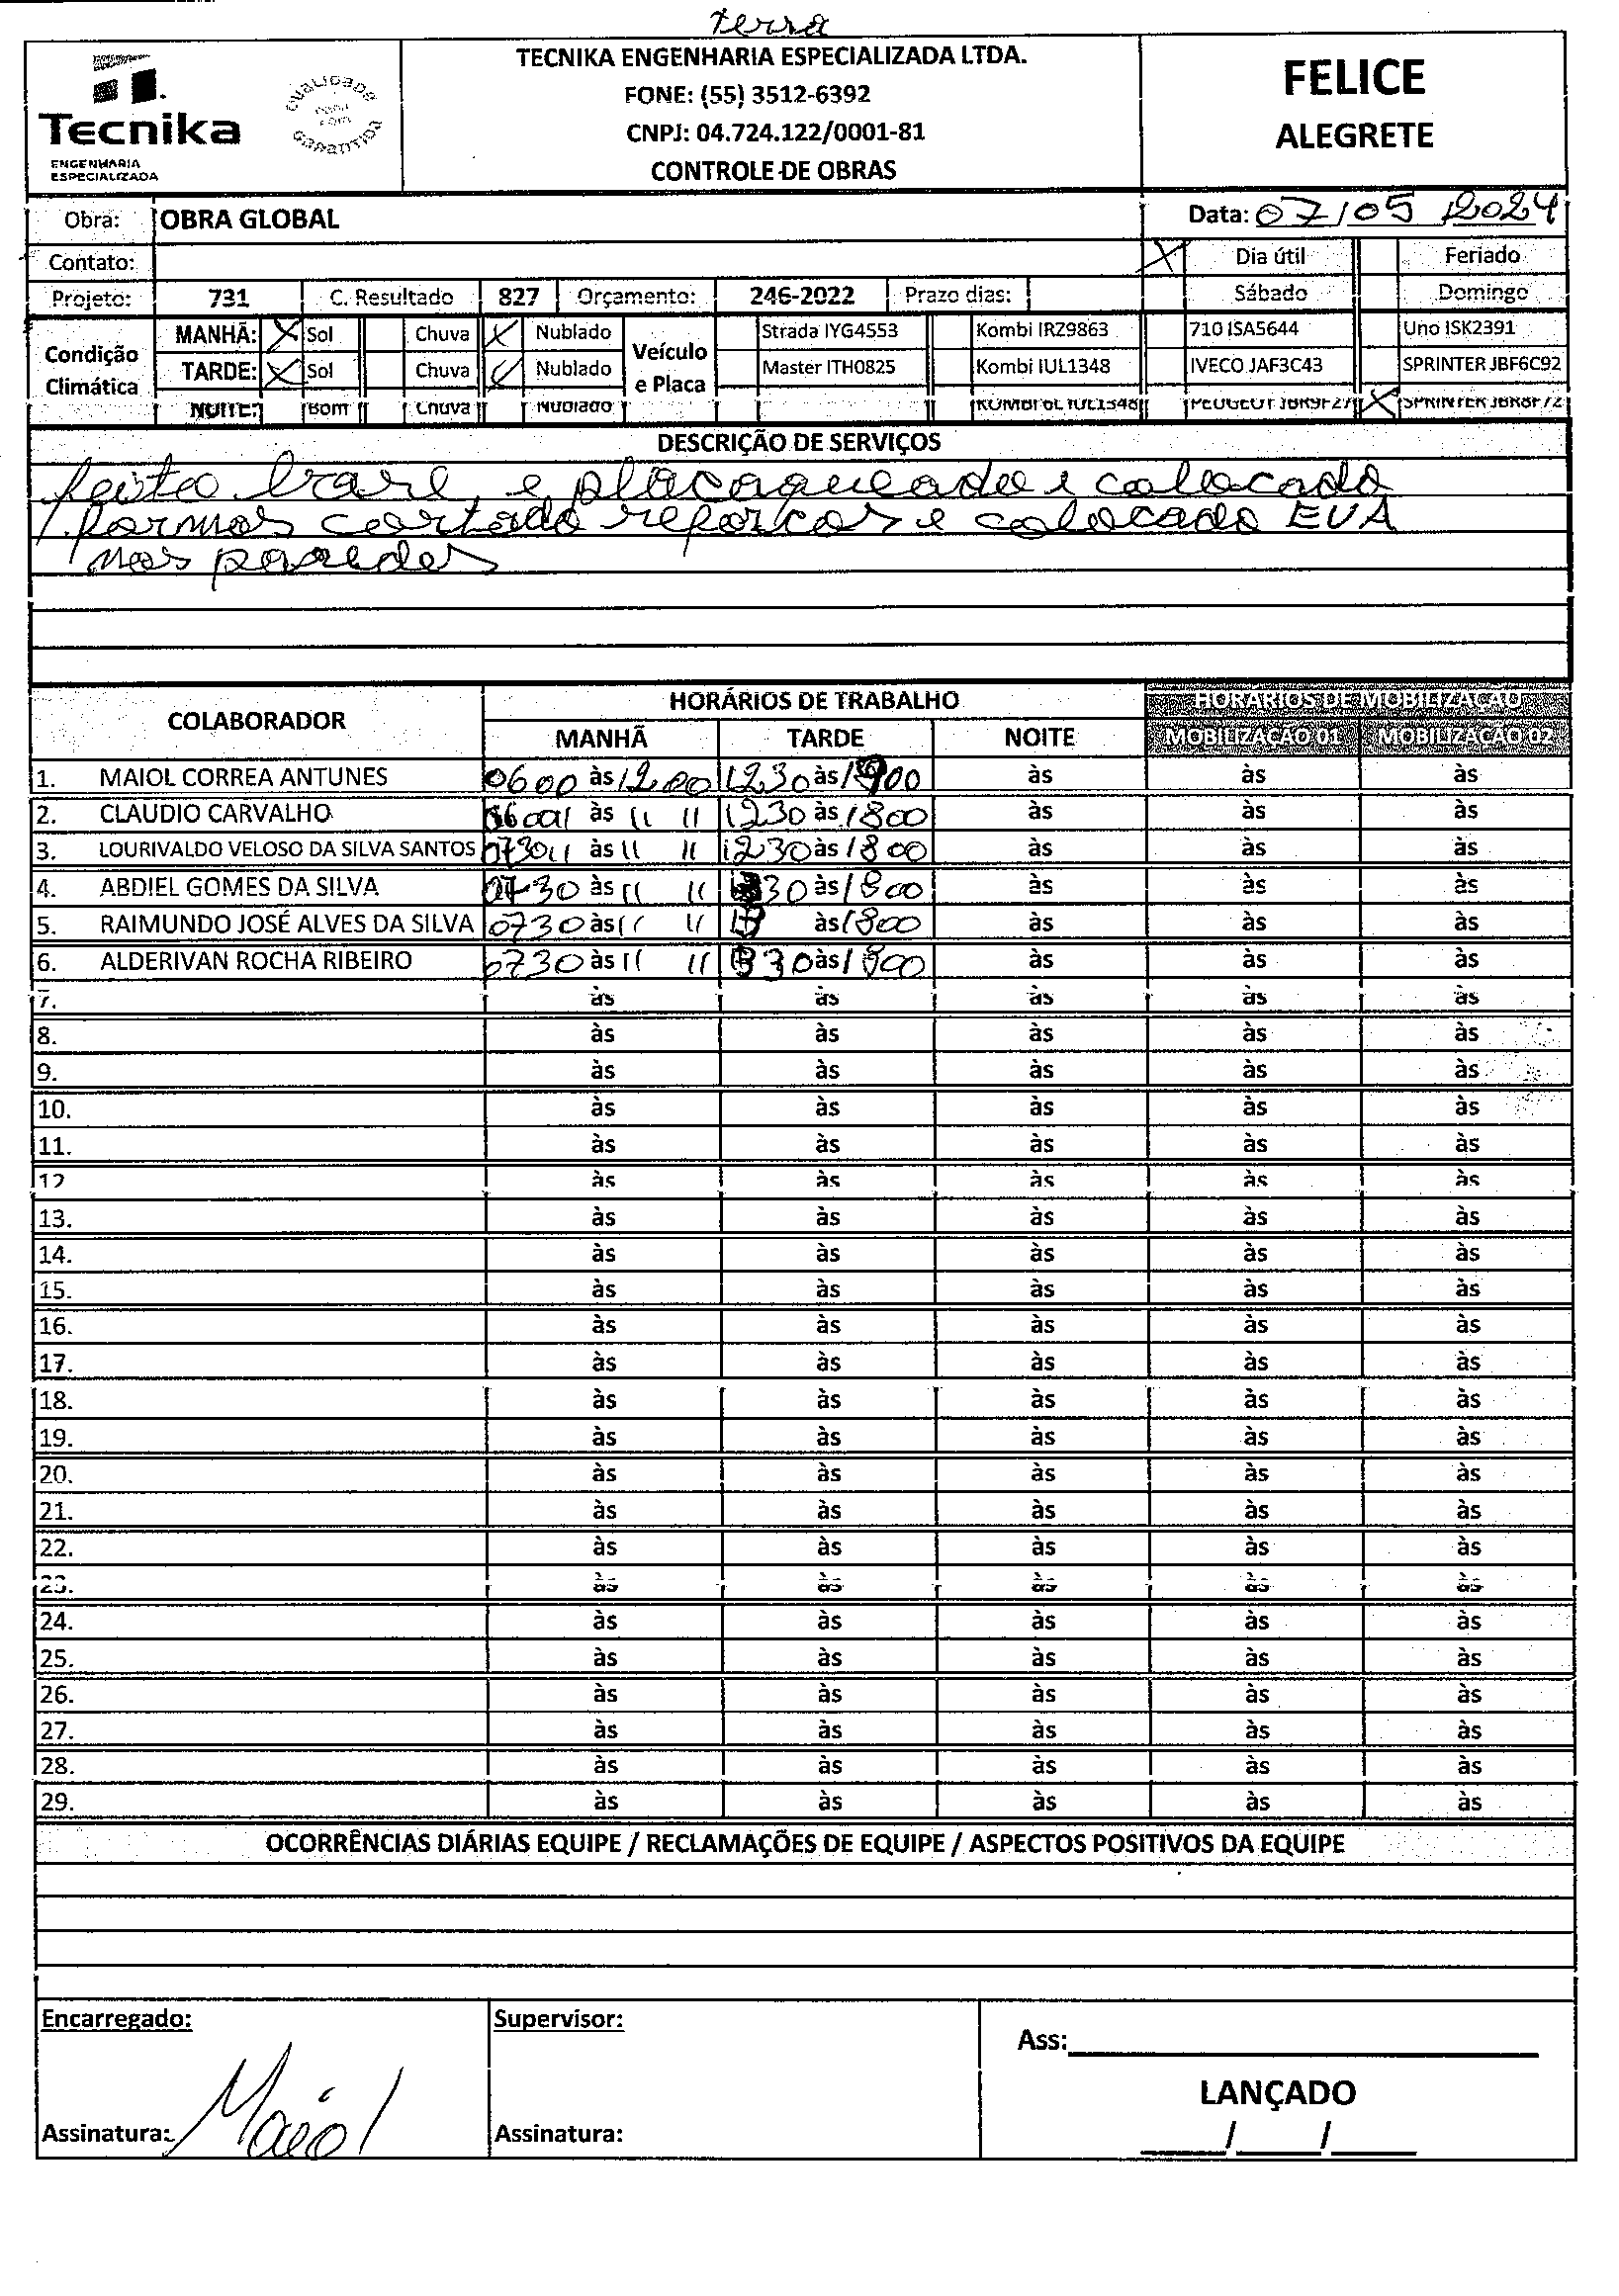 terra
Tecnika
ENGENHARIA
ESPECIALIZADA
QUALIDADE
GARANTIDA
TECNIKA ENGENHARIA ESPECIALIZADA LTDA.
FONE: (55) 3512-6392
CNPJ: 04.724.122/0001-81
CONTROLE DE OBRAS
FELICE
ALEGRETE
Obra: OBRA GLOBAL Data: 07/05/2024
Contato: X Dia útil Feriado
Projeto: 731 C. Resultado 827 Orçamento: 246-2022 Prazo dias: Sábado Domingo
Condição Climática
MANHÃ: X Sol Chuva X Nublado
TARDE: X Sol Chuva Nublado
NOITE: Bom Chuva Nublado
Veículo e Placa
Strada IYG4553 Kombi IRZ9863 710 ISA5644 Uno ISK2391
Master ITH0825 Kombi IUL1348 IVECO JAF3C43 SPRINTER JBF6C92
KOMBI 6L IUL1348 PEUGEOT JBR9F27 X SPRINTER JBR8F72
DESCRIÇÃO DE SERVIÇOS
feito e colocado
formas cortado reforços e colocado EVA
nas paredes
COLABORADOR HORÁRIOS DE TRABALHO HORÁRIOS DE MOBILIZAÇÃO
MANHÃ TARDE NOITE MOBILIZAÇÃO 01 MOBILIZAÇÃO 02
1. MAIOL CORREA ANTUNES 0600 às 1200 1230 às às às às
2. CLAUDIO CARVALHO às 11 11 1230 às 1800 às às às
3. LOURIVALDO VELOSO DA SILVA SANTOS 0730 11 às 11 11 1230 às 1800 às às às
4. ABDIEL GOMES DA SILVA 0730 às 11 11 30 às 1800 às às às
5. RAIMUNDO JOSÉ ALVES DA SILVA 0730 às 11 11 às 1800 às às às
6. ALDERIVAN ROCHA RIBEIRO 0730 às 11 11 30 às 1800 às às às
7. às às às às às
8. às às às às às
9. às às às às às
10. às às às às às
11. às às às às às
12 às às às às às
13. às às às às às
14. às às às às às
15. às às às às às
16. às às às às às
17. às às às às às
18. às às às às às
19. às às às às às
20. às às às às às
21. às às às às às
22. às às às às às
23. às às às às às
24. às às às às às
25. às às às às às
26. às às às às às
27. às às às às às
28. às às às às às
29. às às às às às
OCORRÊNCIAS DIÁRIAS EQUIPE / RECLAMAÇÕES DE EQUIPE / ASPECTOS POSITIVOS DA EQUIPE
Encarregado: Supervisor:
Ass:
LANÇADO
Assinatura: Maiol Assinatura:
/ /